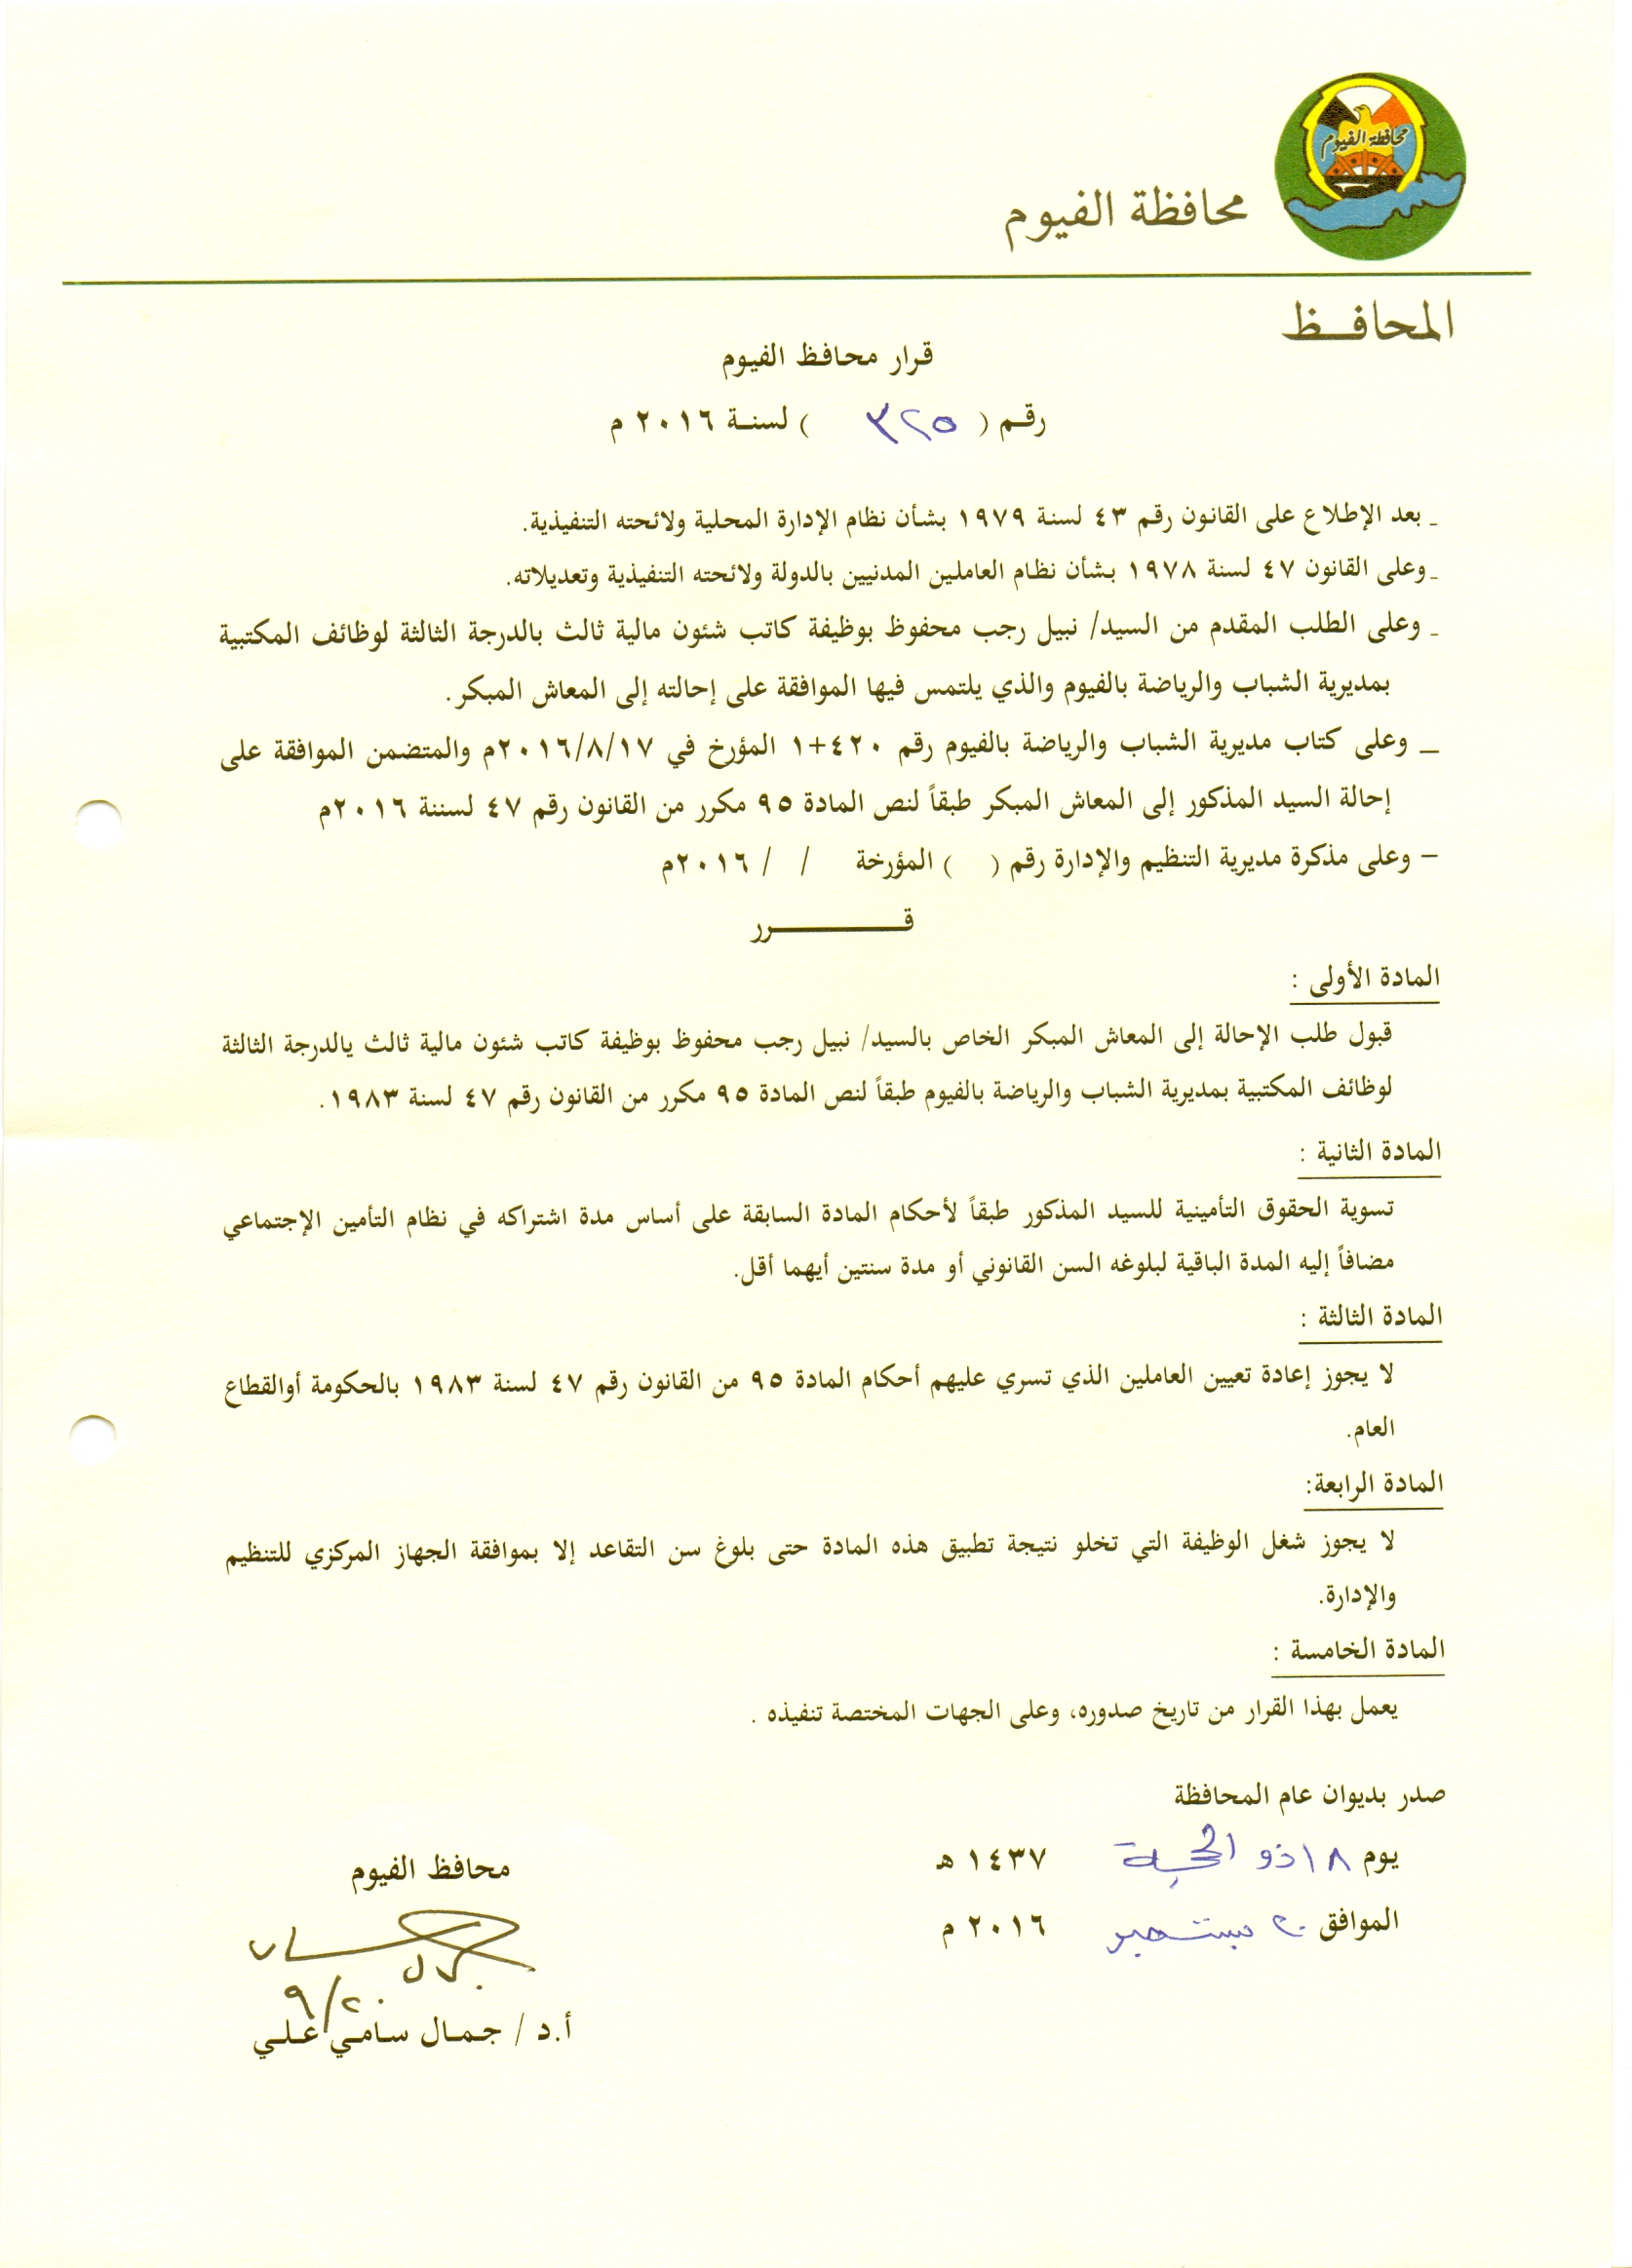 محافظة الفيوم
محافظة الفيوم
المحافــظ
قرار محافظ الفيوم
رقم ( ٣٢٥ ) لسنة ٢٠١٦ م
_ بعد الإطلاع على القانون رقم ٤٣ لسنة ١٩٧٩ بشأن نظام الإدارة المحلية ولائحته التنفيذية.
_ وعلى القانون ٤٧ لسنة ١٩٧٨ بشأن نظام العاملين المدنيين بالدولة ولائحته التنفيذية وتعديلاته.
_ وعلى الطلب المقدم من السيد/ نبيل رجب محفوظ بوظيفة كاتب شئون مالية ثالث بالدرجة الثالثة لوظائف المكتبية
بمديرية الشباب والرياضة بالفيوم والذي يلتمس فيها الموافقة على إحالته إلى المعاش المبكر.
_ وعلى كتاب مديرية الشباب والرياضة بالفيوم رقم ٤٢٠+١ المؤرخ في ٢٠١٦/٨/١٧م والمتضمن الموافقة على
إحالة السيد المذكور إلى المعاش المبكر طبقاً لنص المادة ٩٥ مكرر من القانون رقم ٤٧ لسننة ٢٠١٦م
– وعلى مذكرة مديرية التنظيم والإدارة رقم ( ) المؤرخة / / ٢٠١٦م
قــــــــرر
المادة الأولى :
قبول طلب الإحالة إلى المعاش المبكر الخاص بالسيد/ نبيل رجب محفوظ بوظيفة كاتب شئون مالية ثالث يالدرجة الثالثة
لوظائف المكتبية بمديرية الشباب والرياضة بالفيوم طبقاً لنص المادة ٩٥ مكرر من القانون رقم ٤٧ لسنة ١٩٨٣.
المادة الثانية :
تسوية الحقوق التأمينية للسيد المذكور طبقاً لأحكام المادة السابقة على أساس مدة اشتراكه في نظام التأمين الإجتماعي
مضافاً إليه المدة الباقية لبلوغه السن القانوني أو مدة سنتين أيهما أقل.
المادة الثالثة :
لا يجوز إعادة تعيين العاملين الذي تسري عليهم أحكام المادة ٩٥ من القانون رقم ٤٧ لسنة ١٩٨٣ بالحكومة أوالقطاع
العام.
المادة الرابعة:
لا يجوز شغل الوظيفة التي تخلو نتيجة تطبيق هذه المادة حتى بلوغ سن التقاعد إلا بموافقة الجهاز المركزي للتنظيم
والإدارة.
المادة الخامسة :
يعمل بهذا القرار من تاريخ صدوره، وعلى الجهات المختصة تنفيذه .
صدر بديوان عام المحافظة
يوم ١٨ ذو الحجة ١٤٣٧ هـ
الموافق ٢٠ سبتمبر ٢٠١٦ م
محافظ الفيوم
٩/٢٠
أ.د / جمال سامي علي